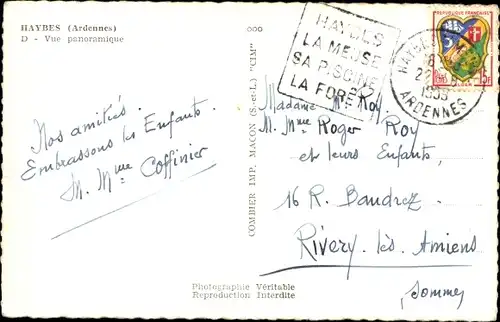 HAYBES (Ardennes)
D - Vue panoramique
Nos amitiés.
Embrassons les Enfants.
M. Mme Coffinier
COMBIER IMP. MACON (S.-et-L.) "CIM"
HAYBES
LA MEUSE
SA PISCINE
LA FORÊT
REPUBLIQUE FRANÇAISE
15F
HAYBES
1959
ARDENNES
Madame M. Roy
M. Mme Roger Roy
et leurs Enfants,
16 R. Baudrez
Rivery-lès-Amiens
Somme
Photographie Véritable
Reproduction Interdite